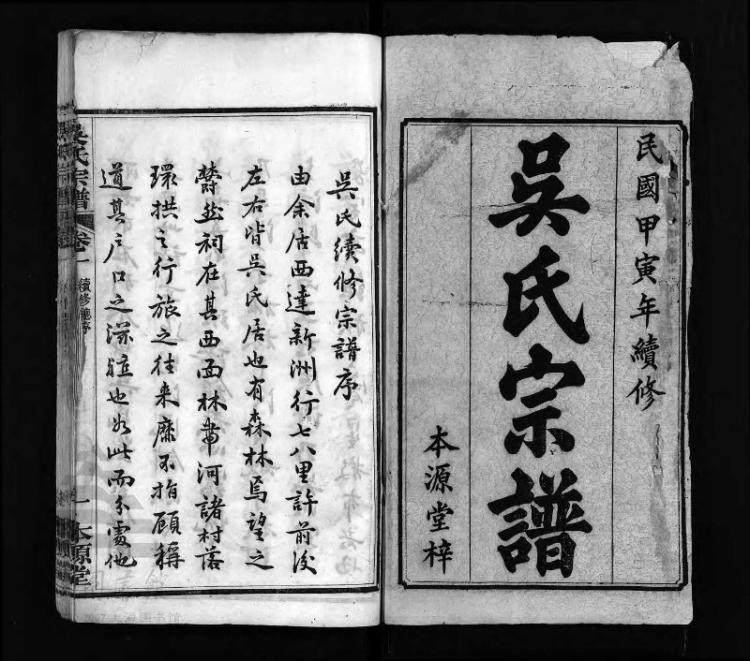 民國甲寅年續修
吳氏宗譜
本源堂梓
吳氏續修宗譜序
由余居西達新洲行七八里許前後
左右皆吳氏居也有森林焉望之
蔚然祠在其西面林帶河諸村落
環拱之行旅之往來靡不指顧稱
道其戶口之深也如此而分處他
吳氏宗譜
卷一
續修譜序
一
本源堂